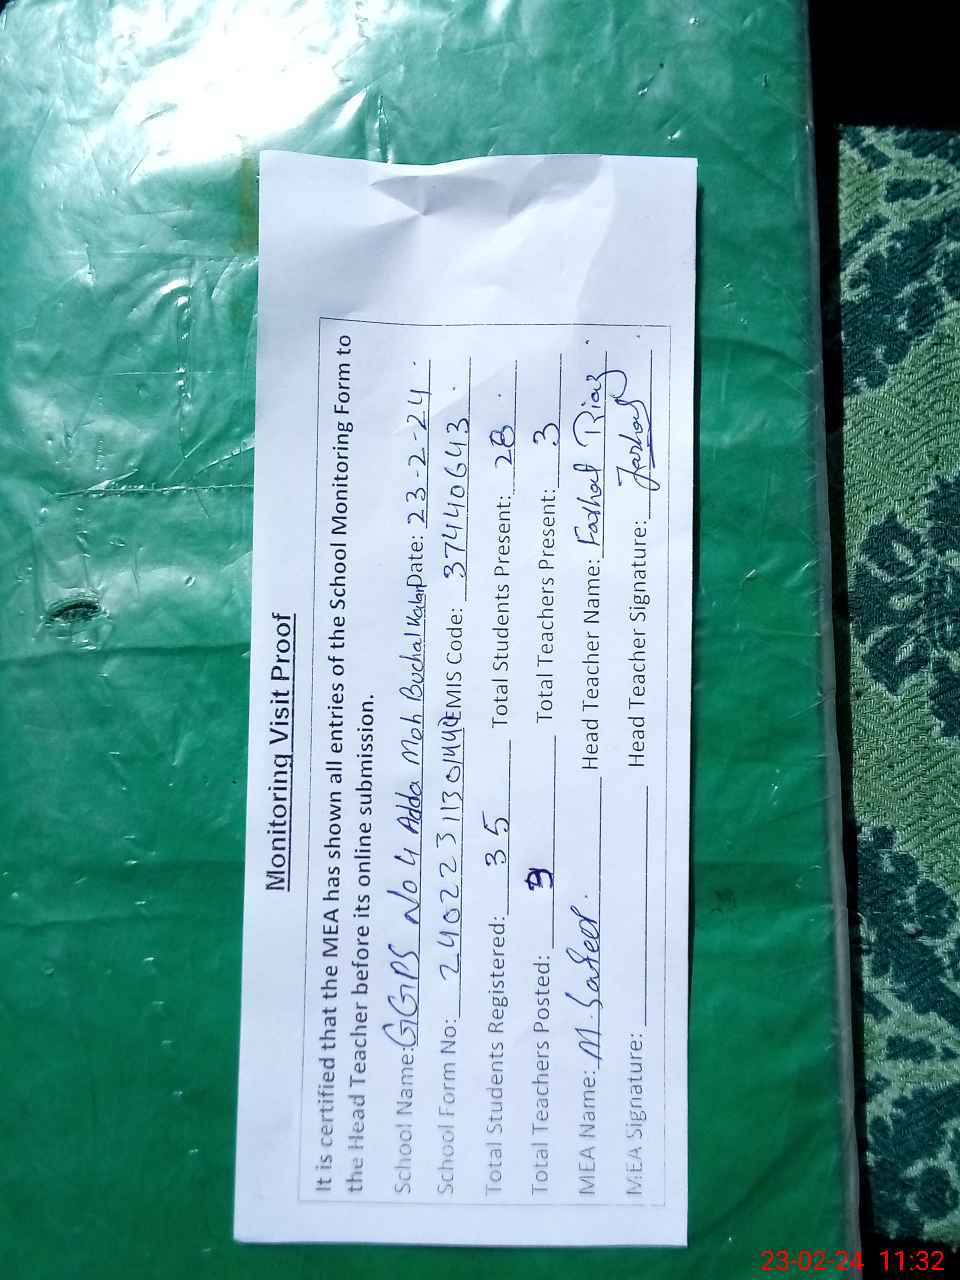 Monitoring Visit Proof
It is certified that the MEA has shown all entries of the School Monitoring Form to
the Head Teacher before its online submission.
School Name: GGPS No 4 Adda Moh Buchal Kalan Date: 23-2-24.
School Form No: EMIS Code: 37440643.
Total Students Registered: 35 Total Students Present: 28.
Total Teachers Posted: Total Teachers Present: 3
MEA Name: M. Head Teacher Name: Riaz.
MEA Signature: Head Teacher Signature:
23-02-24 11:32